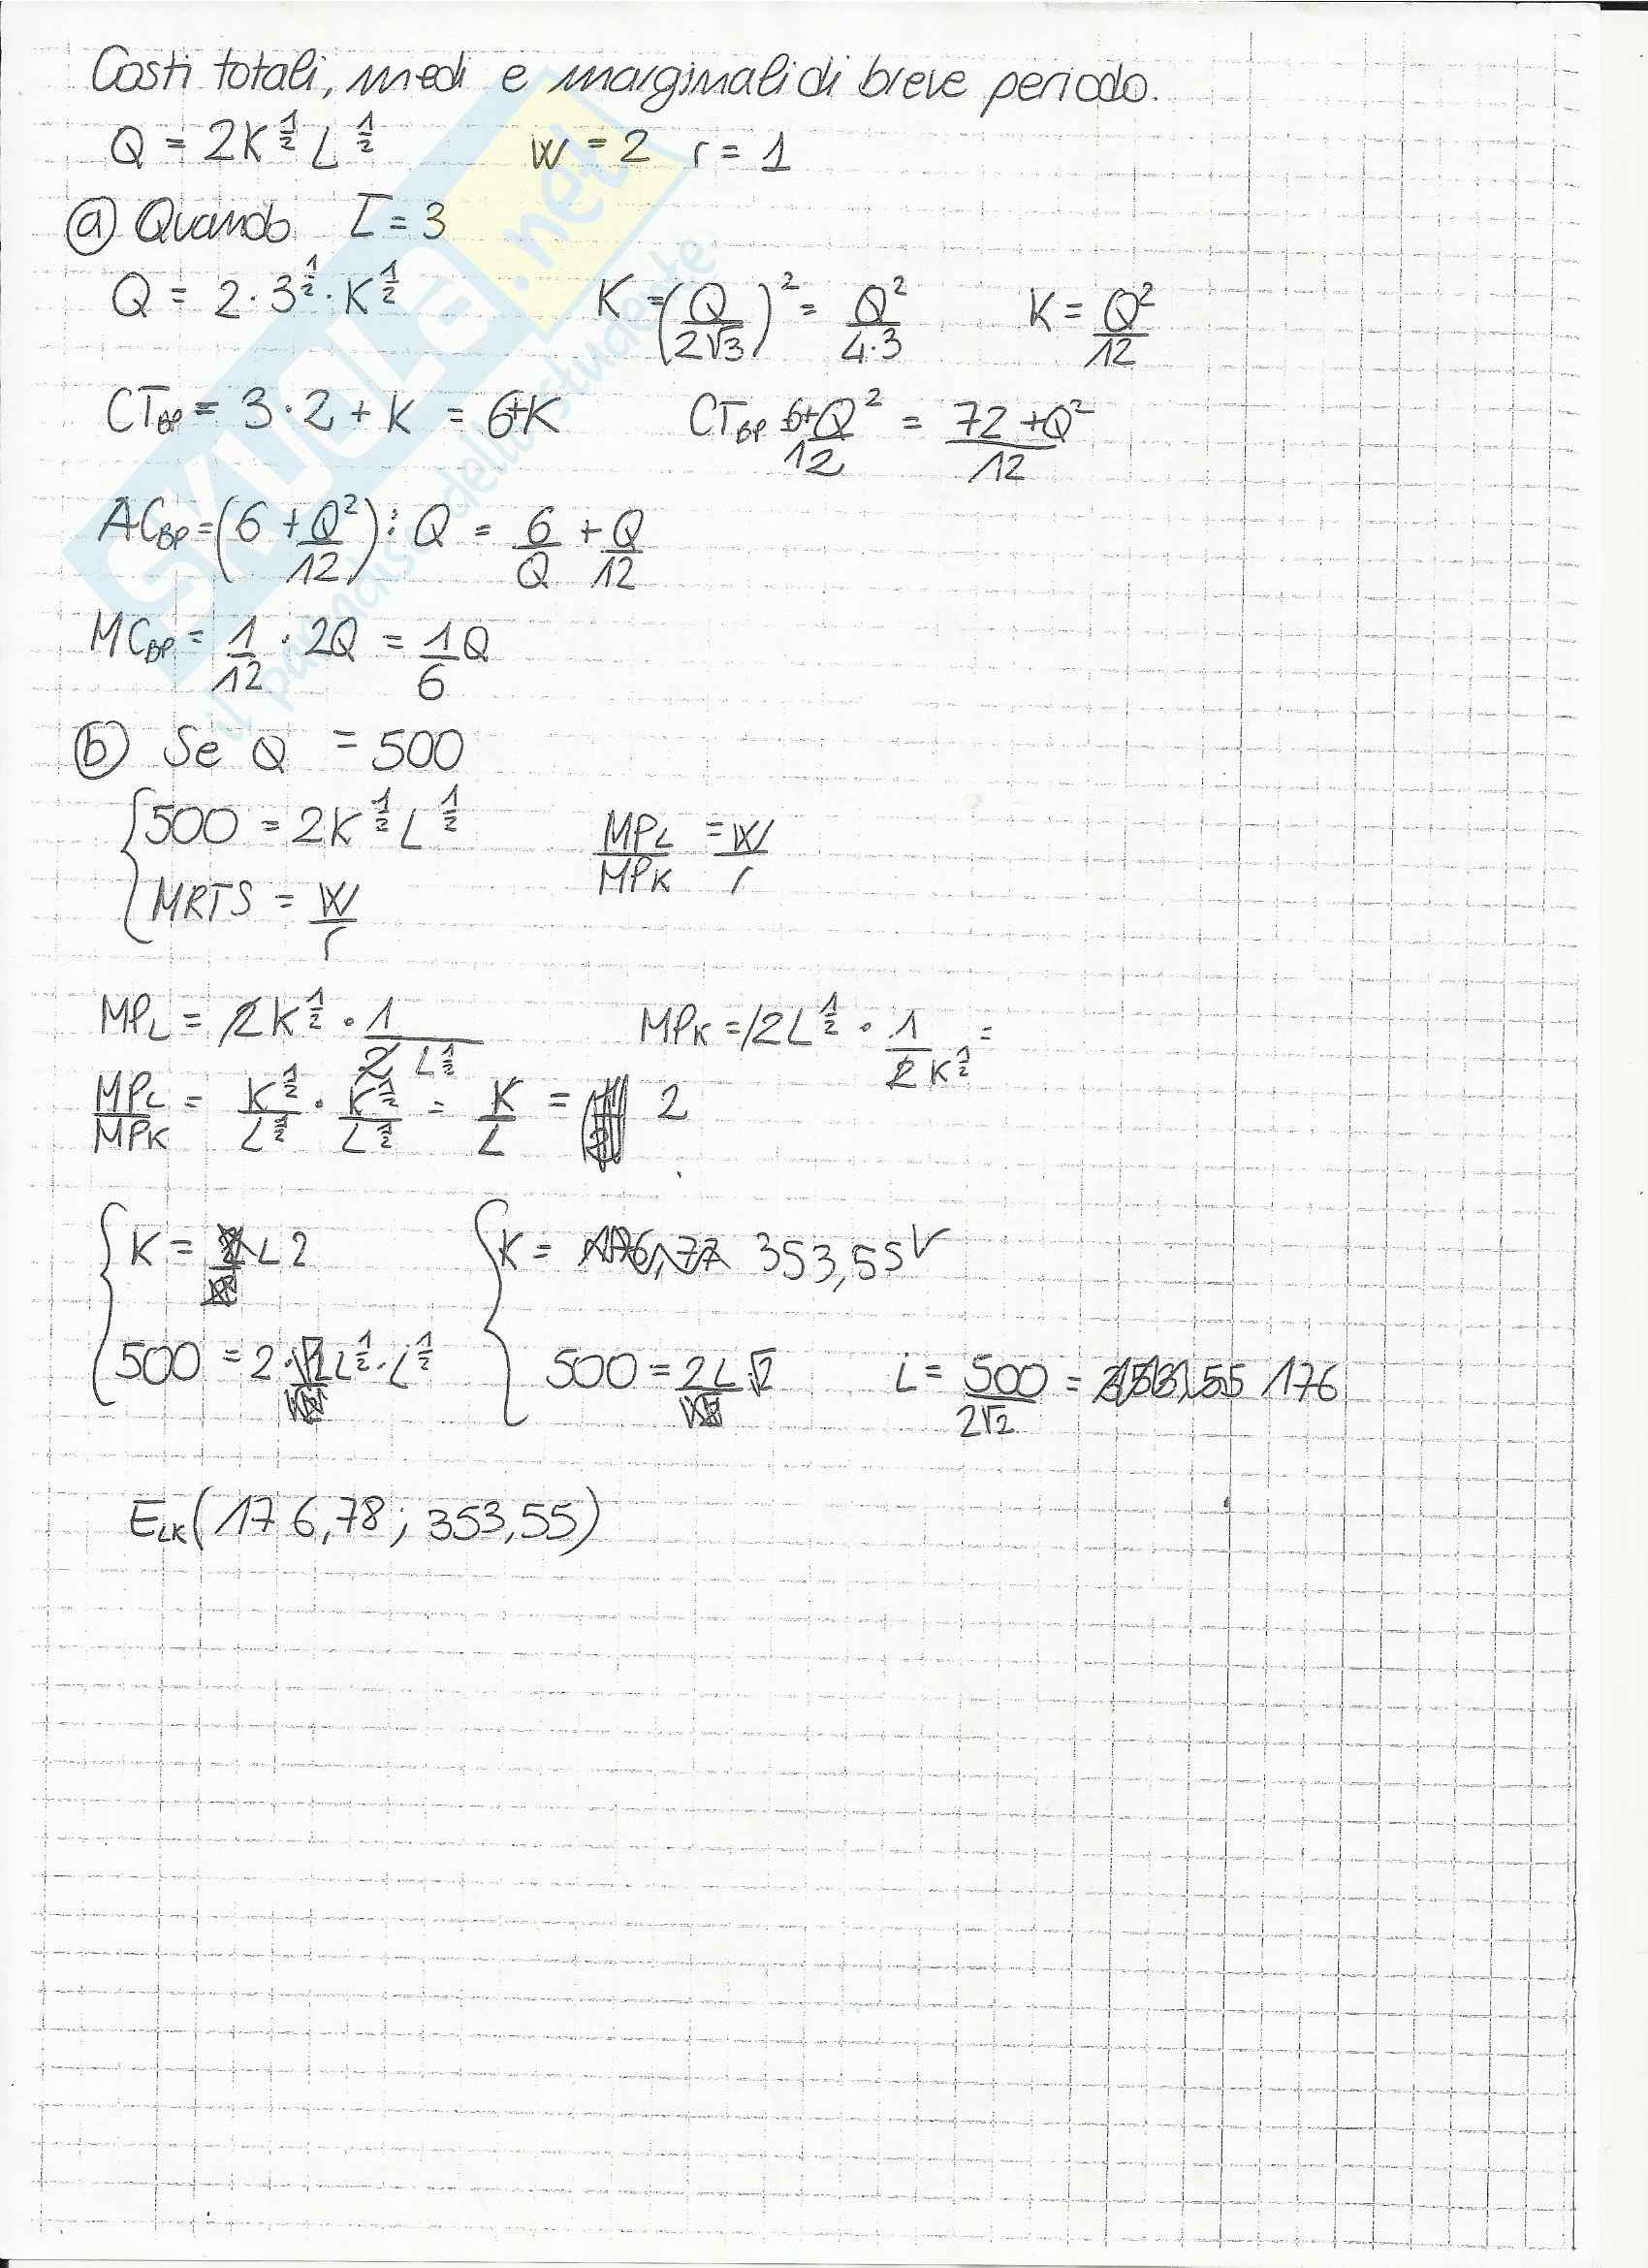 Costi totali, medi e marginali di breve periodo.
Q = 2K^½ L^½ W = 2 r = 1
ⓐ Quando L̄ = 3
Q = 2·3^½·K^½ K = (Q/2√3)² = Q²/4·3 K = Q²/12
CT_BP = 3·2 + K = 6+K CT_BP = 6+Q²/12 = 72+Q²/12
AC_BP = (6 + Q²/12) : Q = 6/Q + Q/12
MC_BP = 1/12 · 2Q = 1/6 Q
ⓑ Se Q = 500
{500 = 2K^½ L^½ MPL/MPK = W/r
{MRTS = W/r
MPL = 2K^½ · 1/2L^½ MPK = 2L^½ · 1/2K^½ =
MPL/MPK = K^½/L^½ · K^½/L^½ = K/L = 2
{K = L2 {K = 353,55
{500 = 2·√2L^½·L^½ {500 = 2L·√2 L = 500/2√2 = 176
E_LK(176,78; 353,55)
SKUOLA.net
il paradiso dello studente